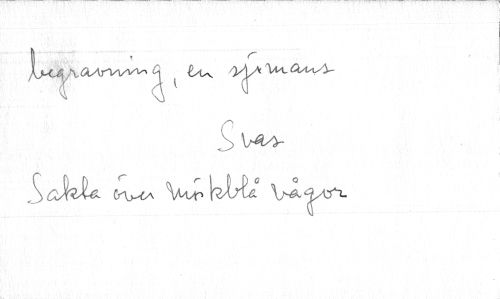 begravning, en sjömans
Svas
Sakta över mörkblå vågor